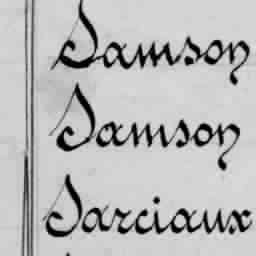 Samson
Samson
Sarciaux